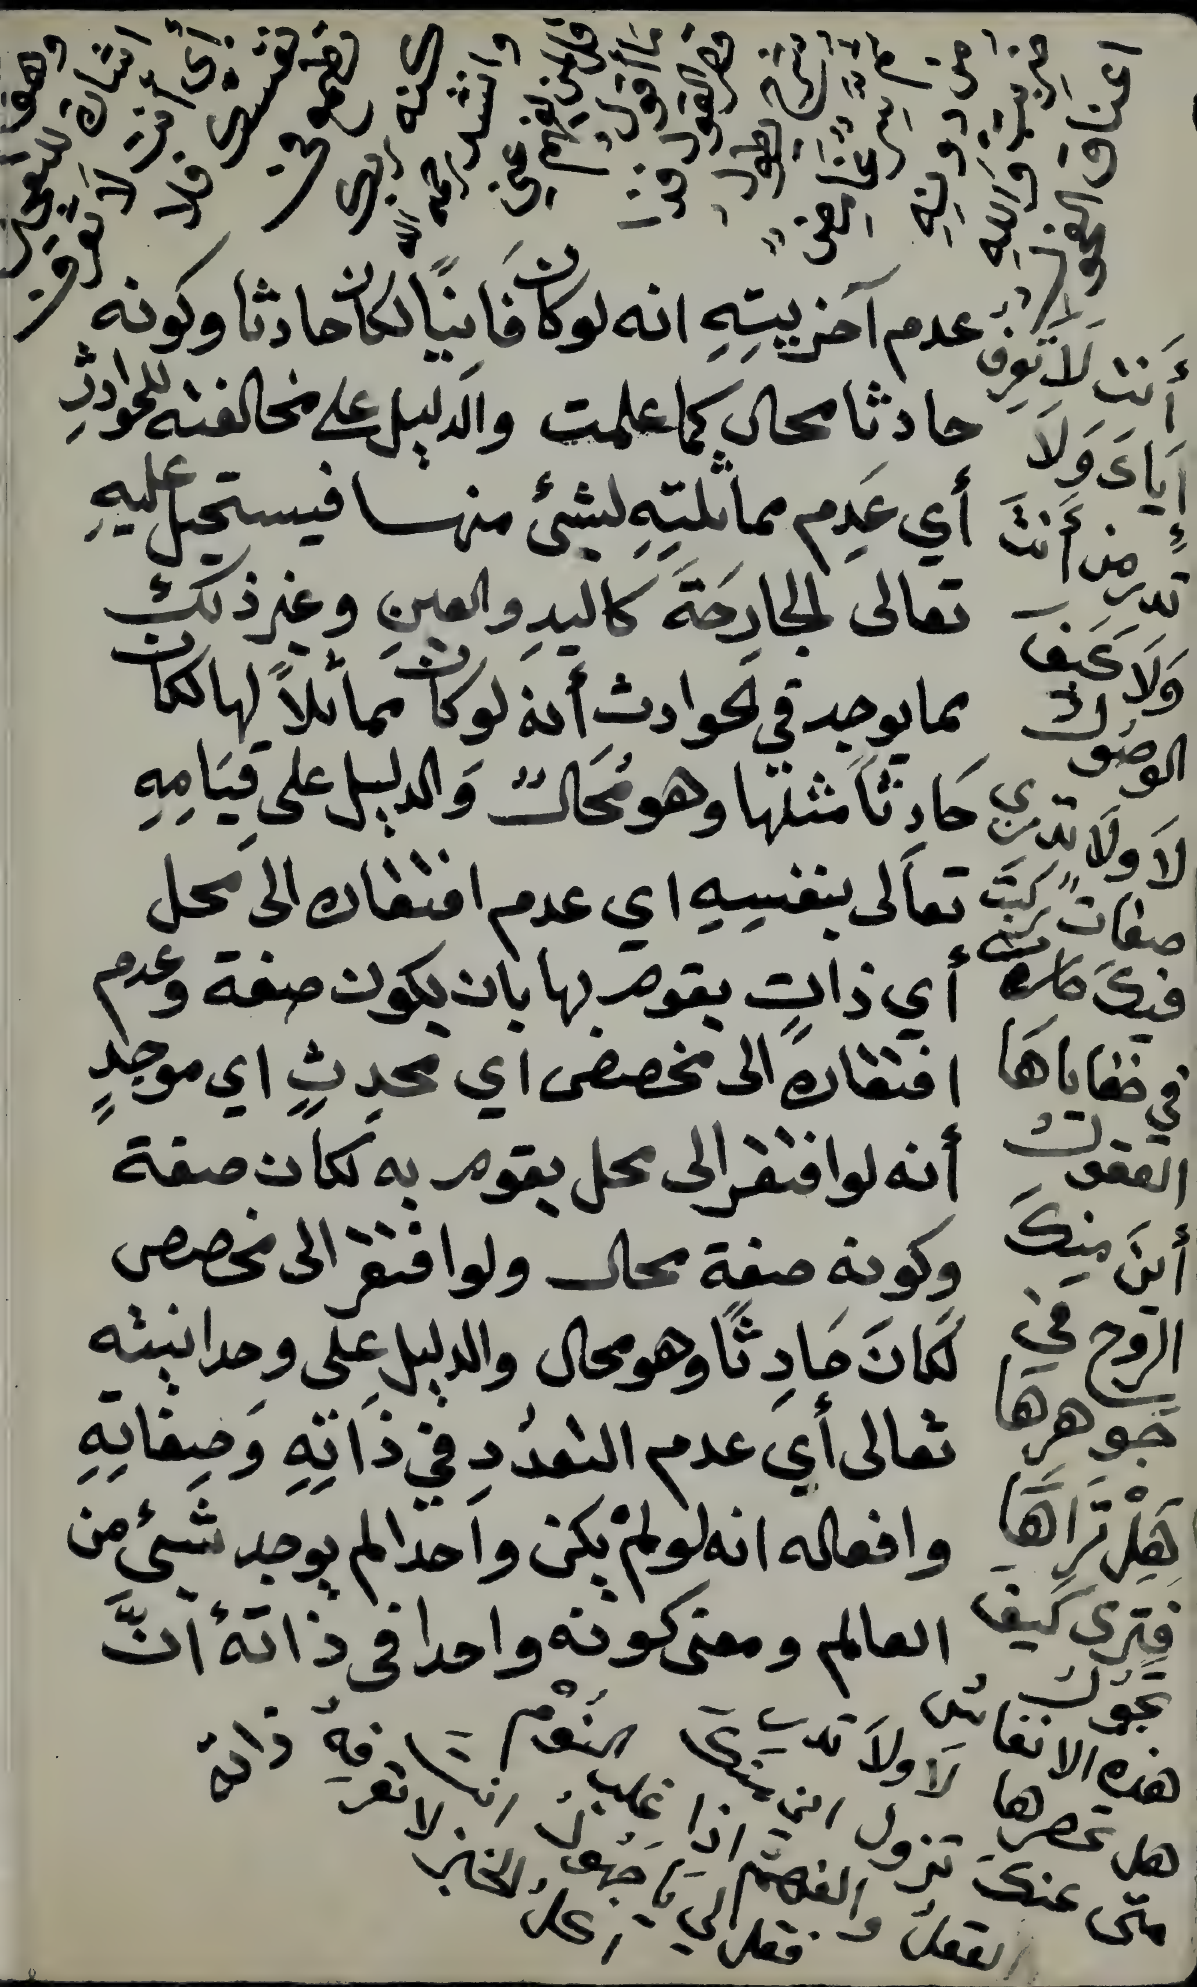 عدم آخريته انه لو كان فانيًا لكان حادثا وكونه
حادثا محال كما علمت والدليل على مخالفته للحوادث
أي عدم مماثلته لشئ منها فيستحيل عليه
تعالى الجارحة كاليد والعين وغير ذلك
مما يوجد في الحوادث أنه لو كان مماثلاً لها لكان
حادثًا مثلها وهو محال والدليل على قيامه
تعالى بنفسه اي عدم افتقاره الى محل
أي ذات يقوم بها بان يكون صفة وعدم
افتقاره الى مخصص اي محدث اي موجد
أنه لو افتقر الى محل يقوم به لكان صفة
وكونه صفة محال ولو افتقر الى مخصص
لكان حادثًا وهو محال والدليل على وحدانيته
تعالى أي عدم التعدد في ذاته وصفاته
وافعاله انه لو لم يكن واحدا لم يوجد شئ من
العالم ومعنى كونه واحدا في ذاته أنَّ
قل لمن يفهم عني
ما أقول
قصر القول فذا
شرح يطول
من دونه
اعناق الفحول
أنت لا تعرف
اياك ولا
تدر من أنت
ولا كيف
الوصول
لا ولا تدري
صفات ركبت
فيك حارت
في خفاياها
العقول
أين منك
الروح في
جوهرها
هل تراها
فترى كيف
تجول
هذه الانفاس
هل تحصرها
لا ولا تدري
متى عنك تزول
اين منك
العقل والفهم
اذا غلب النوم
فقل لي يا جهول
انت
اكل الخبز لا تعرفه